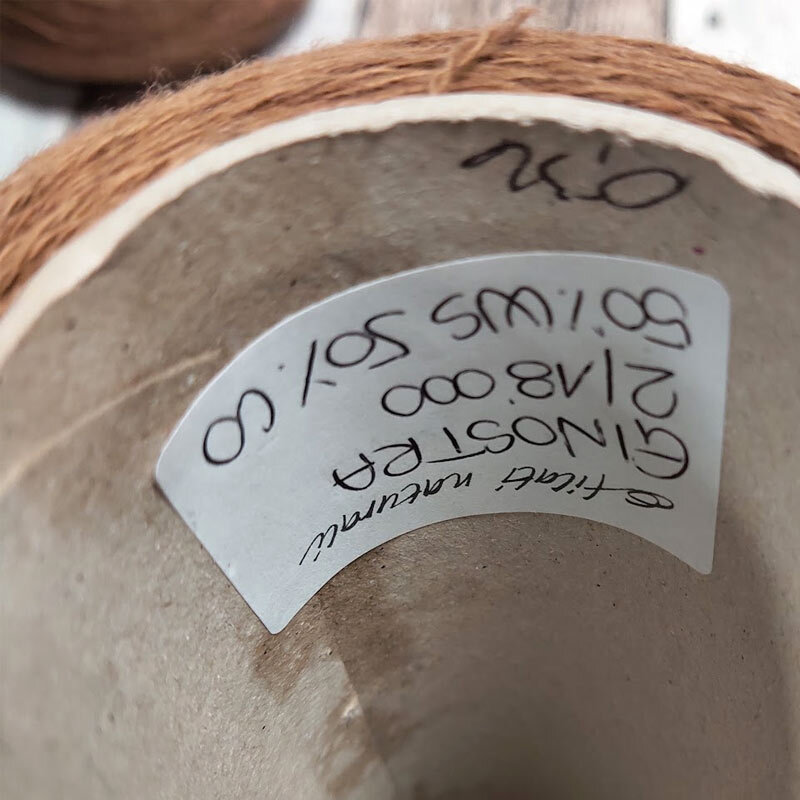 filati naturali
GINOSTRA
2/18'000
50% WS 50% CO